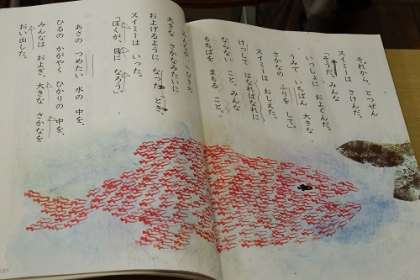 それから、とつぜん
スイミーは さけんだ。
「そうだ。みんな
いっしょに およぐんだ。
うみで いちばん 大きな
さかなの ふりを して。」
スイミーは おしえた。
けっして はなればなれに
ならない こと、みんな
もちばを まもる こと。
大きな さかなみたいに
およげるように なった とき、
スイミーは いった。
「ぼくが、目に なろう。」
あさの つめたい 水の 中を、
ひるの かがやく ひかりの 中を、
みんなは およぎ、大きな さかなを
おい出した。